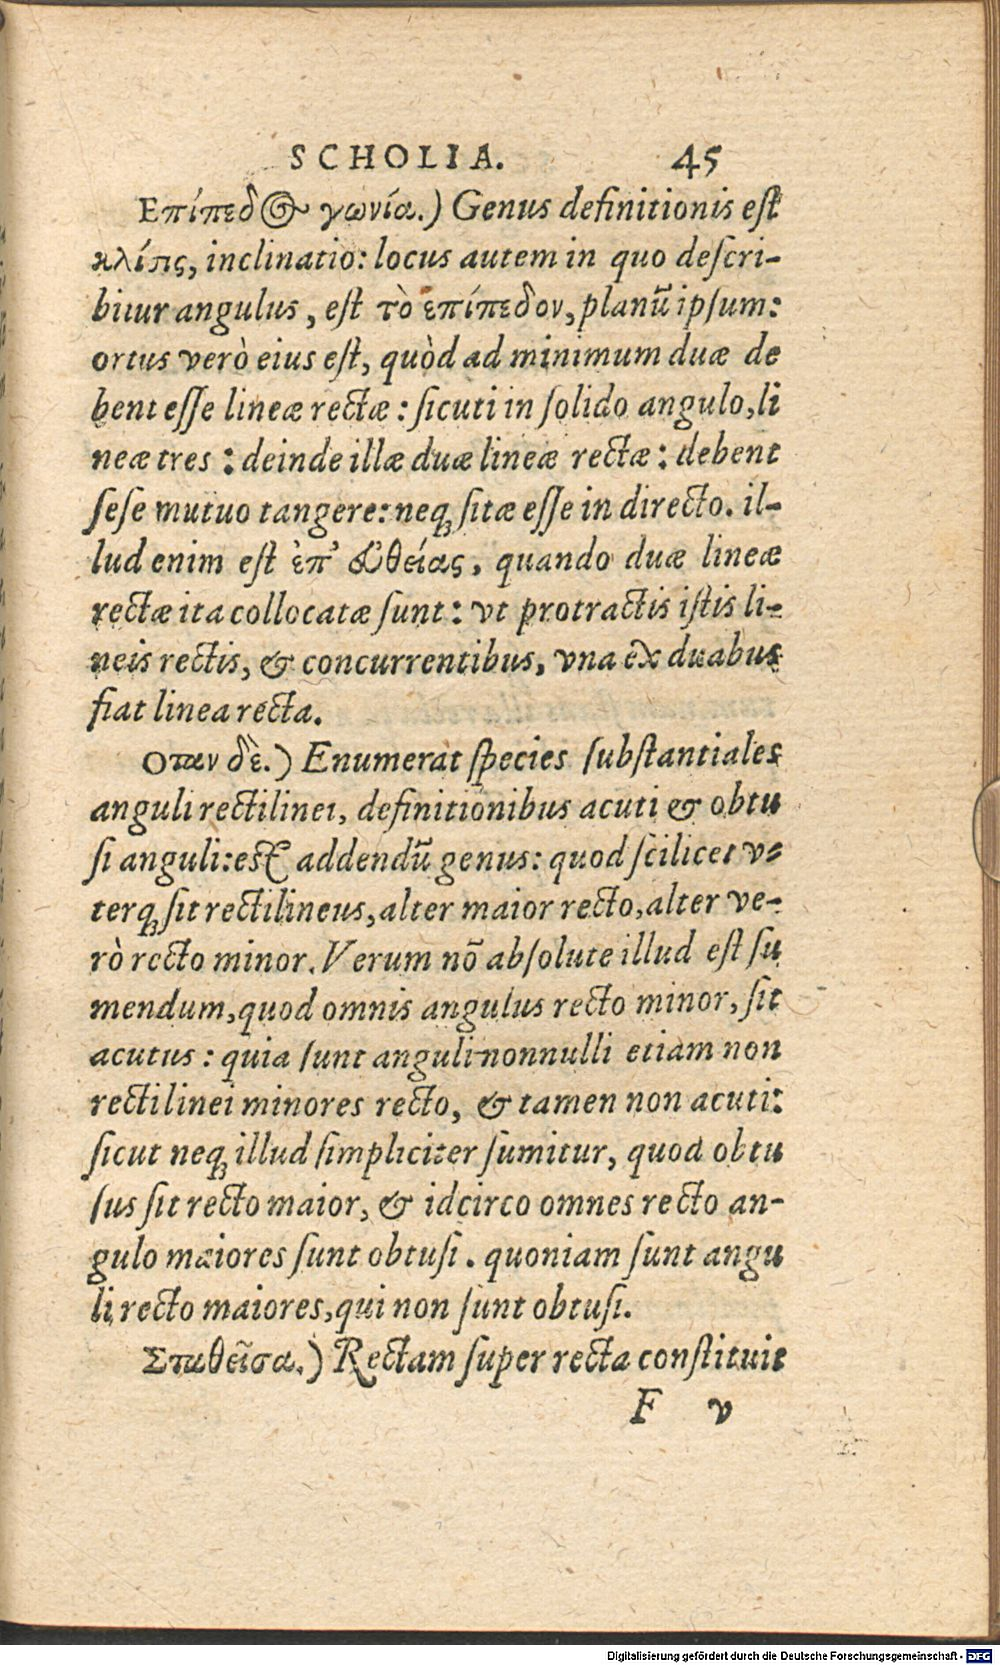 SCHOLIA. 45
Επίπεδος γωνία.) Genus definitionis est
κλίσις, inclinatio: locus autem in quo descri-
bitur angulus, est τὸ ἐπίπεδον, planũ ipsum:
ortus verò eius est, quòd ad minimum duæ de
bent esse lineæ rectæ: sicuti in solido angulo, li
neæ tres: deinde illæ duæ lineæ rectæ: debent
sese mutuo tangere: neq; sitæ esse in directo. il-
lud enim est ἐπ' εὐθείας, quando duæ lineæ
rectæ ita collocatæ sunt: vt protractis istis li-
neis rectis, & concurrentibus, vna ex duabus
fiat linea recta.
Οταν δὲ.) Enumerat species substantiales
anguli rectilinei, definitionibus acuti & obtu
si anguli: est addendũ genus: quod scilicet v-
terq; sit rectilineus, alter maior recto, alter ve-
rò recto minor. Verum nõ absolute illud est su
mendum, quod omnis angulus recto minor, sit
acutus: quia sunt anguli nonnulli etiam non
rectilinei minores recto, & tamen non acuti:
sicut neq; illud simpliciter sumitur, quod obtu
sus sit recto maior, & idcirco omnes recto an-
gulo maiores sunt obtusi. quoniam sunt angu
li recto maiores, qui non sunt obtusi.
Σταθεῖσα.) Rectam super recta constituit
F v
Digitalisierung gefördert durch die Deutsche Forschungsgemeinschaft - DFG